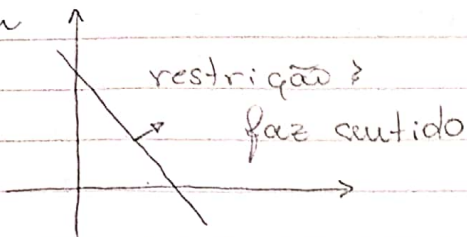 restrição ?
faz sentido